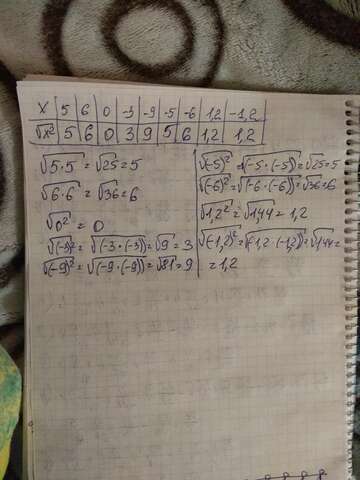 x | 5 | 6 | 0 | -3 | -9 | -5 | -6 | 1,2 | -1,2
√x² | 5 | 6 | 0 | 3 | 9 | 5 | 6 | 1,2 | 1,2
√5·5 = √25 = 5
√6·6 = √36 = 6
√0² = 0
√(-3)² = √(-3·(-3)) = √9 = 3
√(-9)² = √(-9·(-9)) = √81 = 9
√(-5)² = √(-5·(-5)) = √25 = 5
√(-6)² = √(-6·(-6)) = √36 = 6
√1,2² = √1,44 = 1,2
√(-1,2)² = √(-1,2·(-1,2)) = √1,44 =
= 1,2